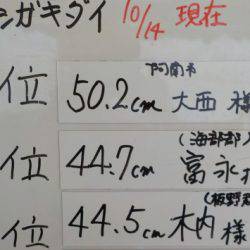 シガキダイ 10/14 現在
阿南市
位 50.2cm 大西 様
(海部郡
位 44.7cm 富永
(板野
位 44.5cm 木内 様